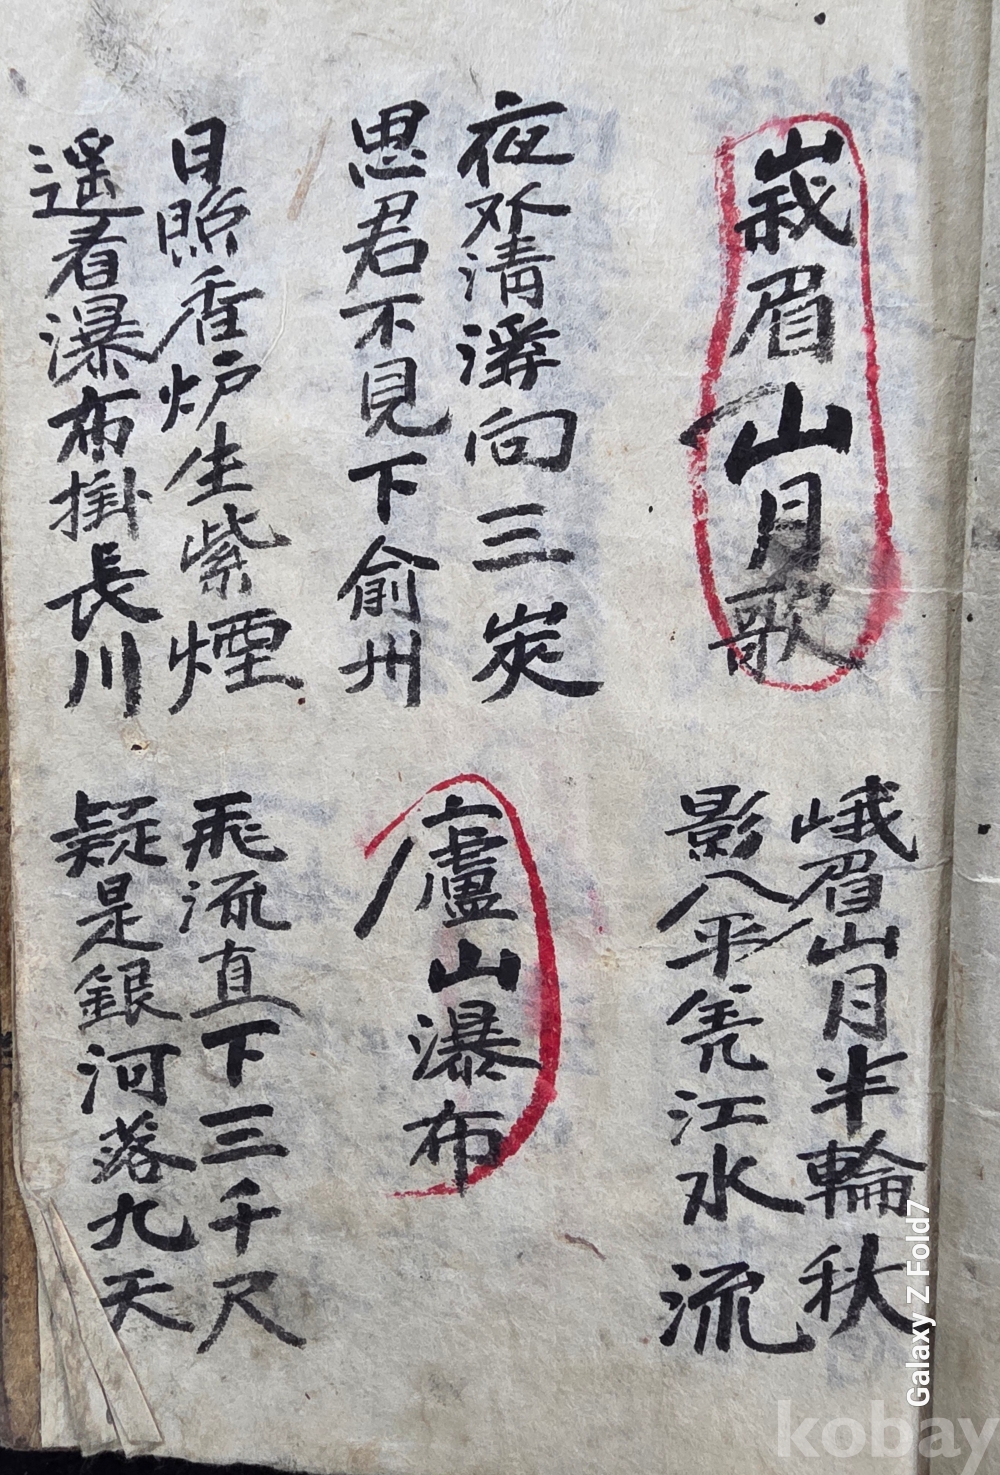 峩眉山月歌
峨眉山月半輪秋
影入平羌江水流
夜外清溪向三炭
思君不見下俞州
廬山瀑布
日照香炉生紫煙
遥看瀑布掛長川
飛流直下三千尺
疑是銀河落九天
Galaxy Z Fold7
kobay